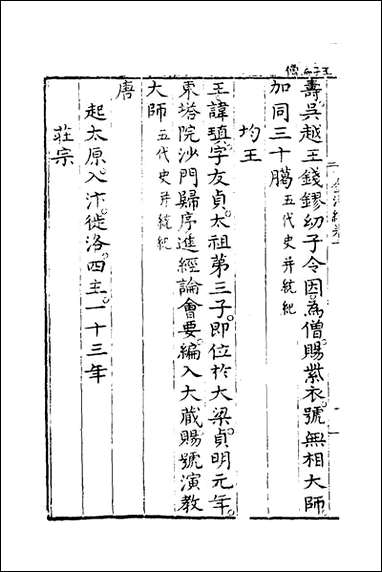 壽吳越王錢鏐幼子令因為僧賜紫衣號無相大師
加同三十臈五代史并統紀
均王
王諱瑱字友貞太祖第三子即位於大梁貞明元年
東塔院沙門歸序進經論會要編入大藏賜號演教
大師五代史并統紀
唐
起太原入汴徙洛四主一十三年
莊宗